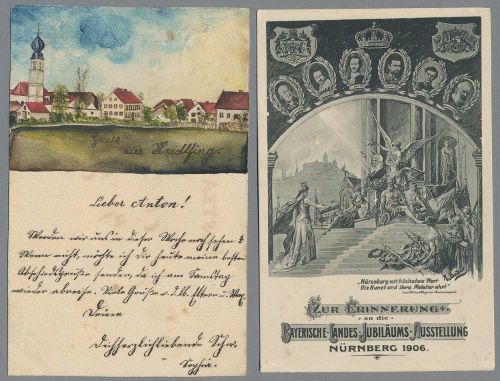 Gruss
aus Haidlfing.
Lieber Anton!
Werden wir uns in dieser Woche noch sehen?
Wenn nicht, möchte ich Dir heute meine besten
Abschiedsgrüße senden, da ich am Samstag
wieder abreise. Viele Grüße a. d. lb. Eltern u.
Deine
Dichherzlichliebende Schw.
Sophie.
„Nürnberg mit höchstem Wert
Die Kunst und ihre Meister ehrt“
ZUR ERINNERUNG
an die
BAYERISCHE-LANDES-JUBILÄUMS-AUSSTELLUNG
NÜRNBERG 1906.